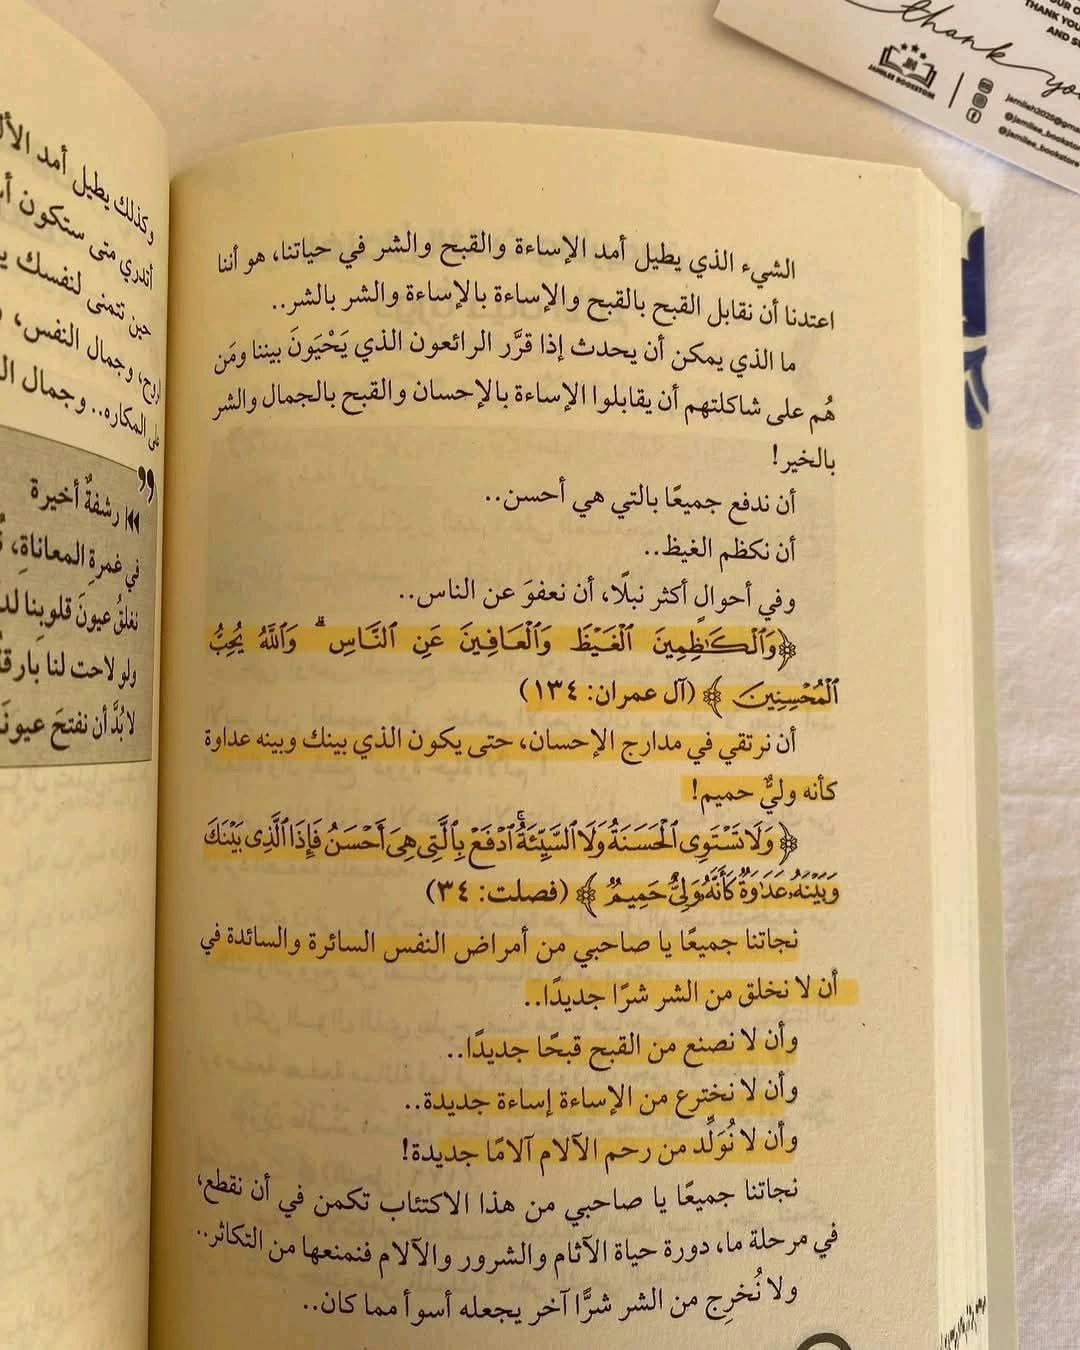 الشيء الذي يطيل أمد الإساءة والقبح والشر في حياتنا، هو أننا
اعتدنا أن نقابل القبح بالقبح والإساءة بالإساءة والشر بالشر..
ما الذي يمكن أن يحدث إذا قرَّر الرائعون الذي يَحْيَونَ بيننا ومَن
هُم على شاكلتهم أن يقابلوا الإساءة بالإحسان والقبح بالجمال والشر
بالخير!
أن ندفع جميعًا بالتي هي أحسن..
أن نكظم الغيظ..
وفي أحوالٍ أكثر نبلًا، أن نعفوَ عن الناس..
﴿وَٱلْكَٰظِمِينَ ٱلْغَيْظَ وَٱلْعَافِينَ عَنِ ٱلنَّاسِ ۗ وَٱللَّهُ يُحِبُّ
ٱلْمُحْسِنِينَ﴾ (آل عمران: ١٣٤)
أن نرتقي في مدارج الإحسان، حتى يكون الذي بينك وبينه عداوة
كأنه وليٌّ حميم!
﴿وَلَا تَسْتَوِى ٱلْحَسَنَةُ وَلَا ٱلسَّيِّئَةُ ۚ ٱدْفَعْ بِٱلَّتِى هِىَ أَحْسَنُ فَإِذَا ٱلَّذِى بَيْنَكَ
وَبَيْنَهُۥ عَدَٰوَةٌ كَأَنَّهُۥ وَلِىٌّ حَمِيمٌ﴾ (فصلت: ٣٤)
نجاتنا جميعًا يا صاحبي من أمراض النفس السائرة والسائدة في
أن لا نخلق من الشر شرًا جديدًا..
وأن لا نصنع من القبح قبحًا جديدًا..
وأن لا نخترع من الإساءة إساءة جديدة..
وأن لا نُوَلِّد من رحم الآلام آلامًا جديدة!
نجاتنا جميعًا يا صاحبي من هذا الاكتئاب تكمن في أن نقطع،
في مرحلة ما، دورة حياة الآثام والشرور والآلام فنمنعها من التكاثر..
ولا نُخرِج من الشر شرًّا آخر يجعله أسوأ مما كان..
وكذلك يطيل أمد
أتدري متى ستكون
حين تتمنى لنفسك
وجمال النفس،
المكاره.. وجمال
رشفةٌ أخيرة
في غمرةِ المعاناةِ،
نغلقُ عيونَ قلوبِنا
ولو لاحت لنا
لا بُدَّ أن نفتحَ
thank
JAMILEE BOOKSTORE
THANK YOU
@jamilee_bookstore
@jamilee_bookstore